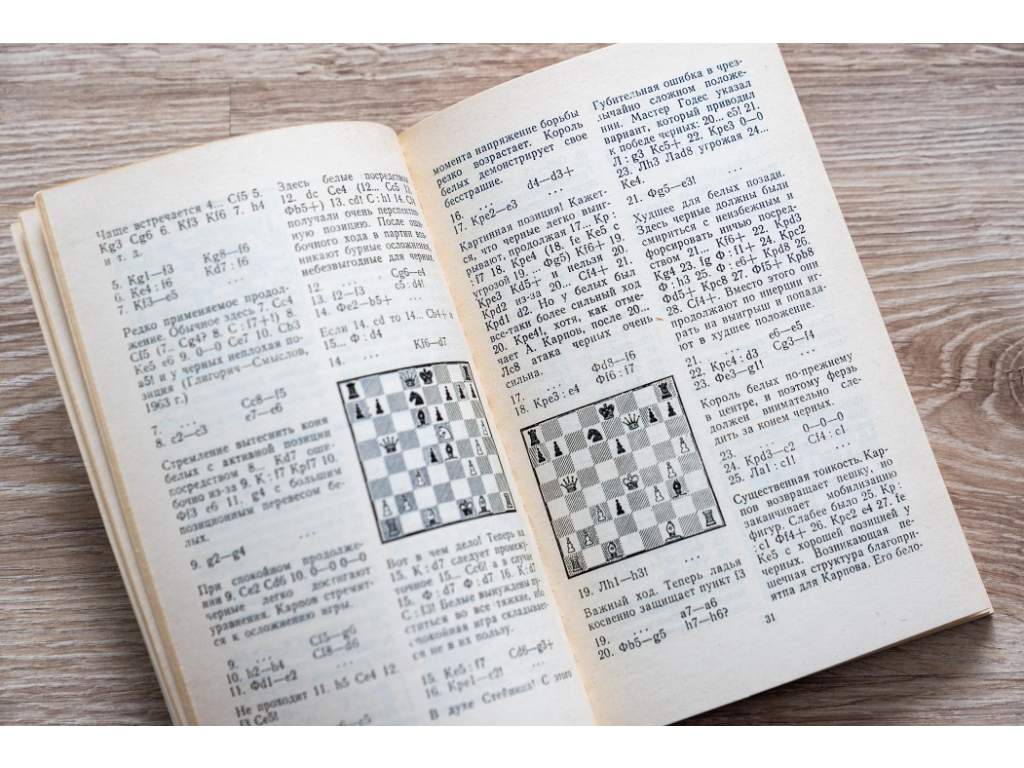 Чаще встречается 4... Cf5 5.
Kg3 Cg6 6. Kf3 Kf6 7. h4
и т. д.
Kg8—f6
5. Kg1—f3 Kd7 : f6
6. Ke4 : f6 . . .
7. Kf3—e5
Редко применяемое продол-
жение. Обычное здесь 7. Cc4
Cf5 (7... Cg4? 8. C : f7+!) 8.
Ke5 e6 9. 0—0 Ce7 10. Cb3
a5! и у черных неплохая по-
зиция (Глигорич—Смыслов,
1963 г.)
7. . . . Cc8—f5
8. c2—c3 e7—e6
Стремление вытеснить коня
белых с активной позиции
посредством 8... Kd7 оши-
бочно из-за 9. K : f7 Kpf7 10.
Фf3 e6 11. g4 с большим
позиционным перевесом бе-
лых.
9. g2—g4 . . .
При спокойном продолже-
нии 9. Ce2 Cd6 10. 0—0 0—0
черные легко достигают
уравнения. Карпов стремит-
ся к осложнению игры.
9. . . . Cf5—g6
10. h2—h4 Cf8—d6
11. Фd1—e2 . . .
Не проходит 11. h5 Ce4 12.
f3 Ce5!
Здесь белые посредством
12. dc Ce4 (12... Cc5 13.
Фb5+) 13. cd! C : h1 14. C
получали очень перспектив-
ную позицию. После оши-
бочного хода в партии воз-
никают бурные осложнения,
небезвыгодные для черных.
12. . . . Cg6—e4
13. f2—f3 c5 : d4!
14. Фe2—b5+ . . .
Если 14. cd то 14... Ch4+ и
15... Ф : d4
14. . . . Kf6—d7
Вот в чем дело! Теперь на
15. K : d7 следует
точное 15... Cc6! а в случае
15. Ф : d7 Ф : d7 16. K : d7
C : f3! Белые вынуждены пу-
ститься во все тяжкие, ибо
спокойная игра складывает-
ся не в их пользу.
15. Ke5 : f7 Cd6—g3+
16. Kpe1—e2! . . .
В духе Стейница! С этого
момента напряжение борьбы
резко возрастает. Король
белых демонстрирует свое
бесстрашие.
16. . . . d4—d3+
17. Kpe2—e3 . . .
Картинная позиция! Кажет-
ся, что черные легко выиг-
рывают, продолжая 17... Kp :
: f7 18. Kpe4 (18. fe Kc5 с
угрозой 19... Фg5) Kf6+ 19.
Kpe3 Kd5+ и нельзя 20.
Kpd2 из-за 20... Cf4+ 21.
Kpd1 d2. Но у белых был
все-таки более сильный ход
20. Kpe4!, хотя, как отме-
чает А. Карпов, после 20...
Лc8 атака черных очень
сильна.
17. . . . Фd8—f6
18. Kpe3 : e4 Фf6 : f7
19. Лh1—h3! . . .
Важный ход. Теперь ладья
косвенно защищает пункт f3
19. . . . a7—a6
20. Фb5—g5 h7—h6?
Губительная ошибка в чрез-
вычайно сложном положе-
нии. Мастер Годес указал
вариант, который приводил
к победе черных: 20... e5! 21.
Л : g3 Kc5+ 22. Kpe3 0—0
23. Лh3 Лad8 угрожая 24...
Ke4.
21. Фg5—e3! . . .
Худшее для белых позади.
Здесь черные должны были
смириться с неизбежным и
форсировать ничью посред-
ством 21... Kf6+ 22. Kpd3
Kg4 23. fg Ф : f1+ 24. Kpc2
Ф : h3 25. Ф : e6+ Kpd8 26.
Фd5+ Kpc8 27. Фf5+ Kpb8
28. Cf4+. Вместо этого они
продолжают по инерции иг-
рать на выигрыш и попада-
ют в худшее положение.
21. . . . e6—e5
22. Kpe4 : d3 Cg3—f4
23. Фe3—g1!
Король белых по-прежнему
в центре, и поэтому ферзь
должен внимательно сле-
дить за конем черных.
23. . . . 0—0—0
24. Kpd3—c2 Cf4 : c1
25. Ла1 : c1! . . .
Существенная тонкость. Кар-
пов возвращает пешку, но
заканчивает мобилизацию
фигур. Слабее было 25. Kp :
: c1 Фf4+ 26. Kpc2 e4 27. fe
Ke5 с хорошей позицией у
черных. Возникающая пе-
шечная структура благопри-
ятна для Карпова. Его бело-
31